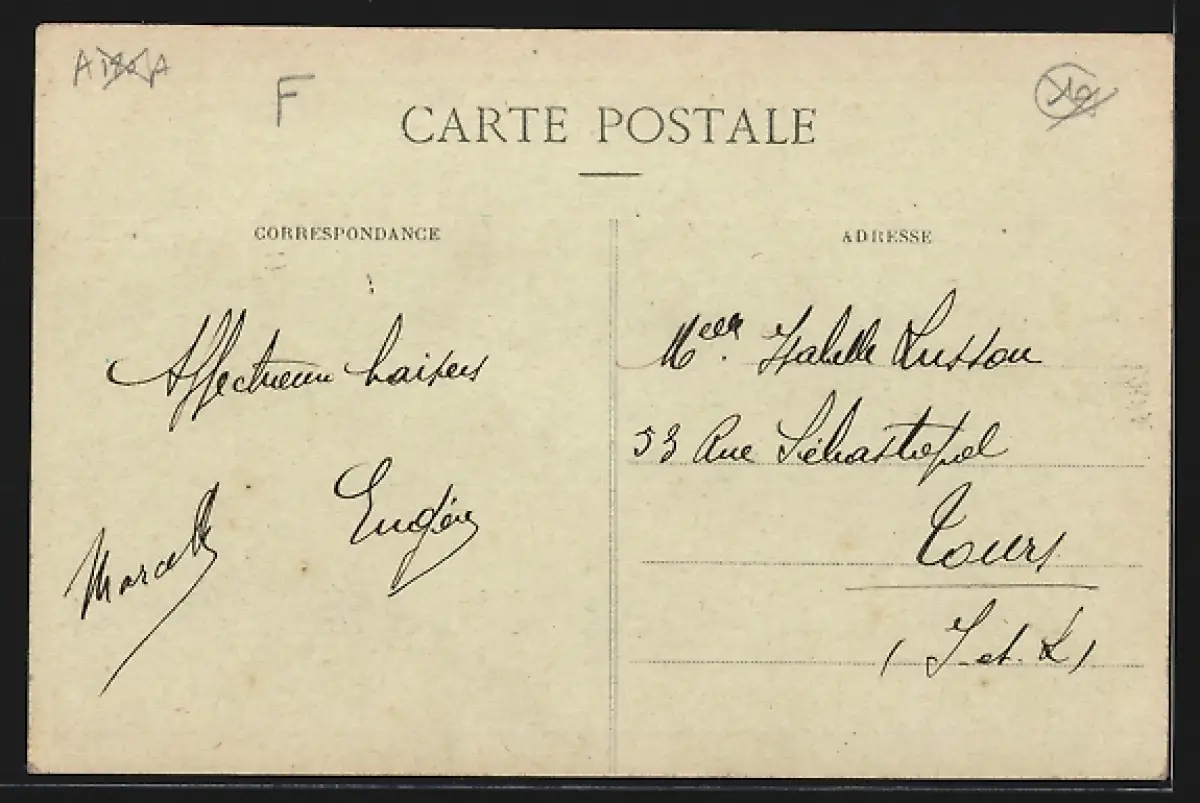 F
CARTE POSTALE
CORRESPONDANCE
ADRESSE
Affectueux baisers
Eugène
Marcelle
Melle. Isabelle Lusson
53 Rue Sébastopol
Tours
(I. et. L)